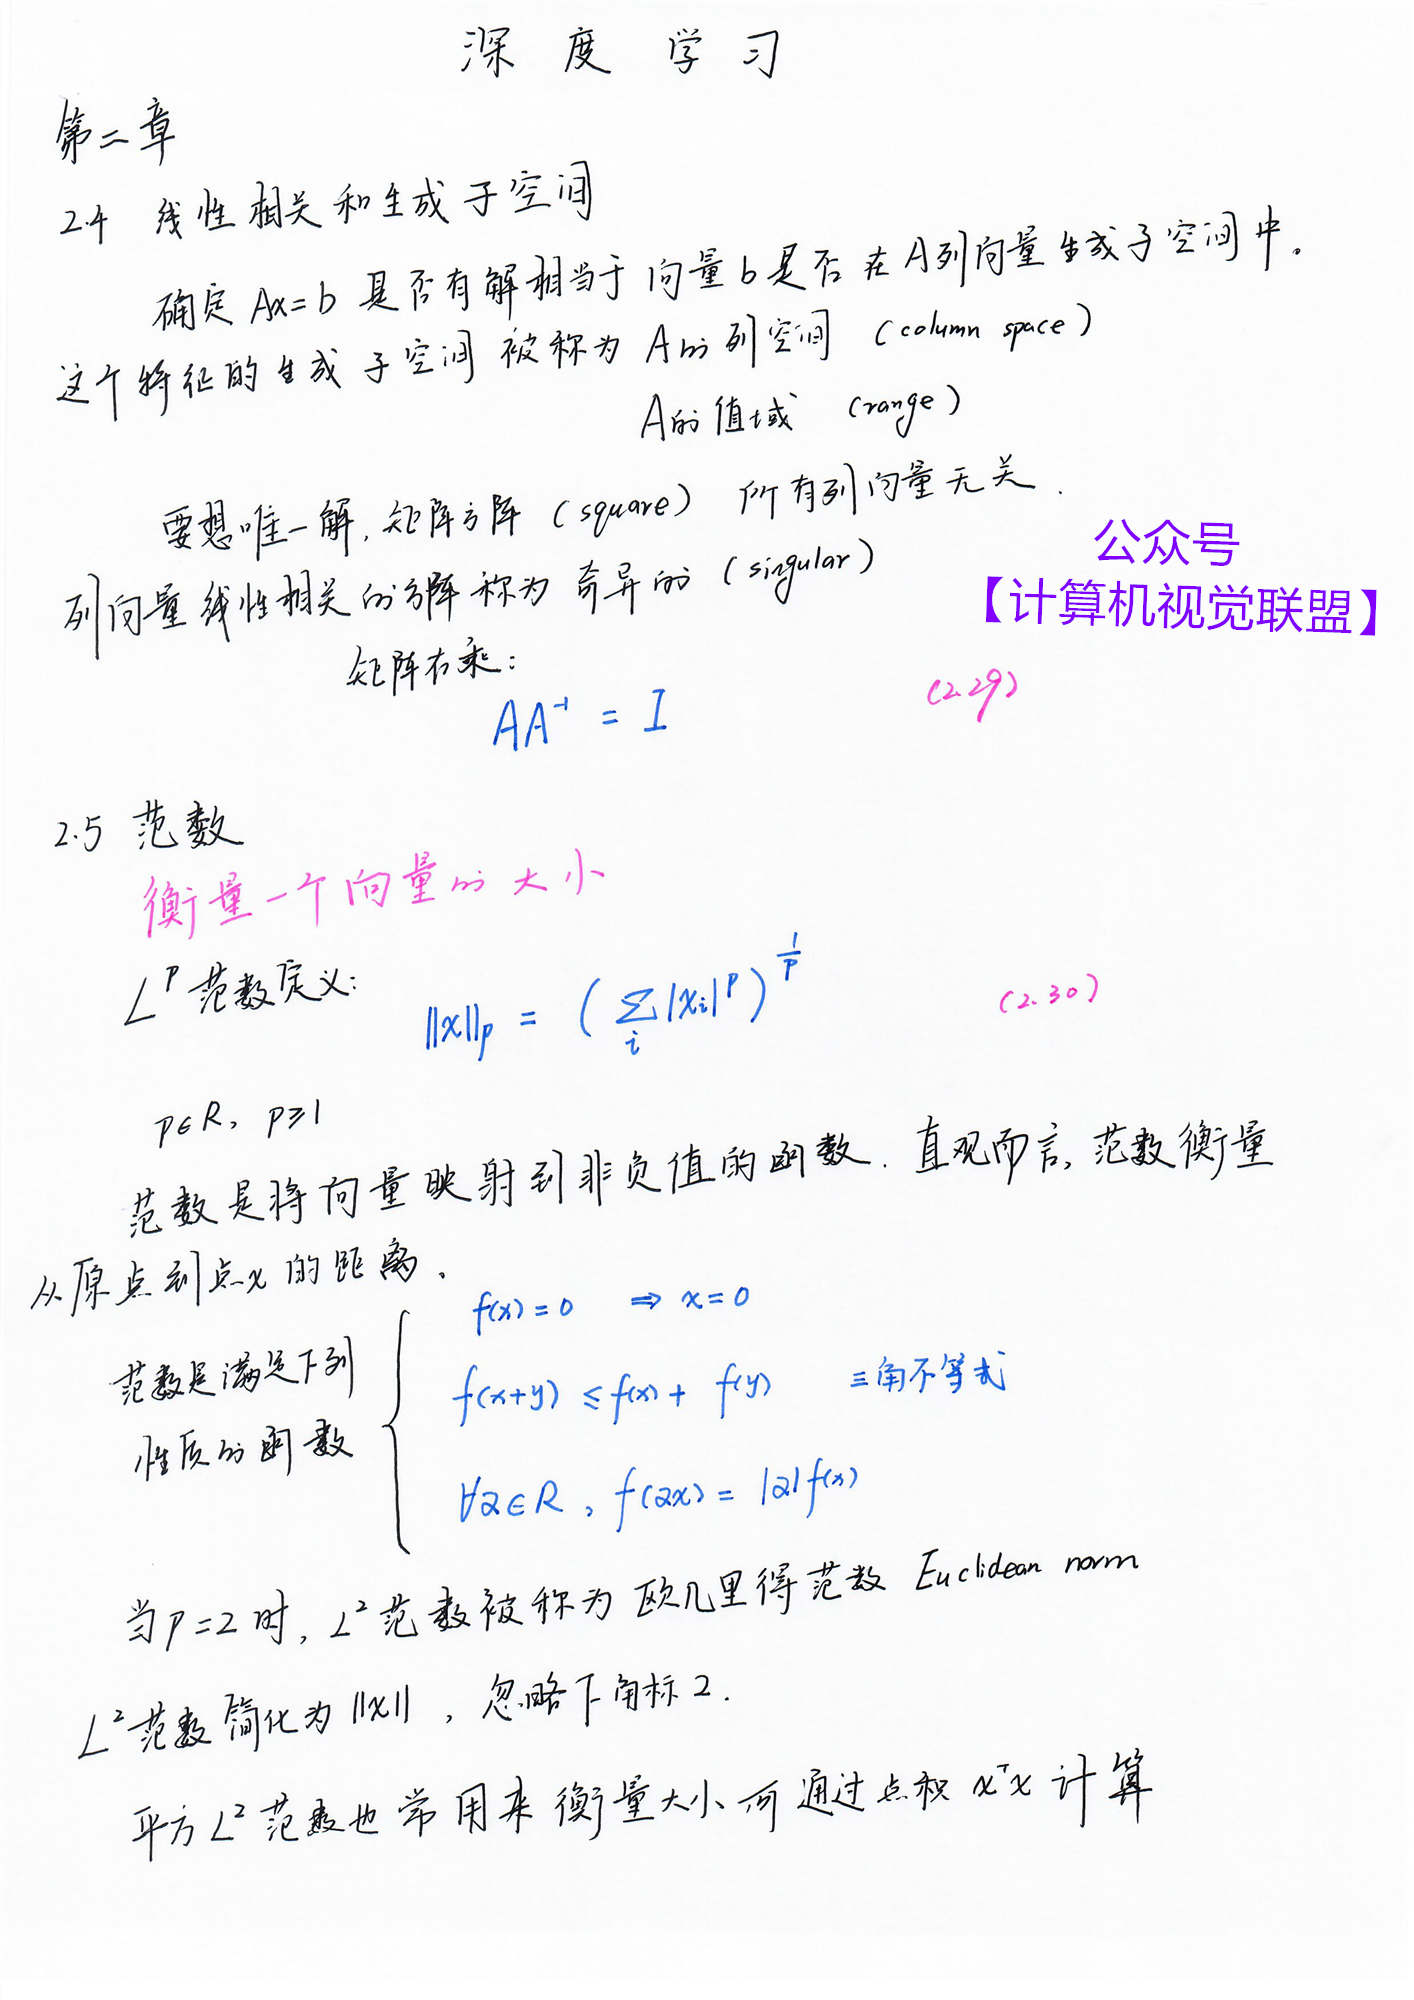 深度学习
第二章
2.4 线性相关和生成子空间
确定 Ax=b 是否有解相当于向量b是否在A列向量生成子空间中。
这个特征的生成子空间被称为 A的列空间 (column space)
A的值域 (range)
要想唯一解,矩阵方阵 (square) 所有列向量无关.
公众号
列向量线性相关的方阵称为奇异的 (singular)
【计算机视觉联盟】
矩阵右乘:
AA⁻¹ = I (2.29)
2.5 范数
衡量一个向量的大小
Lᵖ范数定义:
||x||ₚ = (∑ᵢ|xᵢ|ᵖ)^(1/p) (2.30)
p∈R, p≥1
范数是将向量映射到非负值的函数.直观而言,范数衡量
从原点到点x的距离.
f(x)=0 ⇒ x=0
范数是满足下列
f(x+y) ≤ f(x) + f(y) 三角不等式
性质的函数
∀α∈R, f(αx) = |α|f(x)
当p=2时, L²范数被称为欧几里得范数 Euclidean norm
L²范数简化为||x||,忽略下角标2.
平方L²范数也常用来衡量大小可通过点积 xᵀx 计算